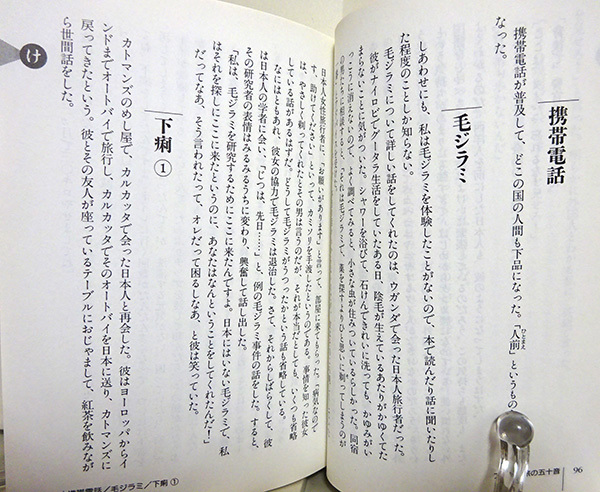 携帯電話
携帯電話が普及して、どこの国の人間も下品になった。「人前」というもの
なった。
毛ジラミ
しあわせにも、私は毛ジラミを体験したことがないので、本で読んだり話に聞いたりし
た程度のことしか知らない。
毛ジラミについて詳しい話をしてくれたのは、ウガンダで会った日本人旅行者だった。
彼がナイロビでグータラ生活をしていたある日、陰毛が生えているあたりがかゆくてた
まらないことに気がついた。シャワーを浴びて、石けんできれいに洗っても、かゆみがい
っこうに消えないので、よく調べてみると、小さな虫が住みついているらしかった。同宿
の男たちに相談すると、「それは毛ジラミで、薬を探すよりひと思いに剃ってしまうのが
日本人女性旅行者に、「お願いがあります」と言って、部屋に来てもらった。「病気なので
す、助けてください」といって、カミソリを手渡したというのである。事情を知った彼女
は、やさしく剃ってくれたとその男は言うのだが、それが本当だとしても、いくつも省略
している話があるはずだ。どうして毛ジラミがうつったかという話も省略している。
なにはともあれ、彼女の協力で毛ジラミは退治した。さて、それからしばらくして、彼
は日本人の学者に会い、「じつは、先日……」と、例の毛ジラミ事件の話をした。すると、
その研究者の表情はみるみるうちに変わり、興奮して話し出した。
「私は、毛ジラミを研究するためにここに来たんですよ。日本にはいない毛ジラミで、私
はそれを探しにここに来たというのに、あなたはなんということをしてくれたんだ！」
だってなあ、そう言われたって、オレだって困るしなあ、と彼は笑っていた。
下痢①
カトマンズのめし屋で、カルカッタで会った日本人と再会した。彼はヨーロッパからイ
ンドまでオートバイで旅行し、カルカッタでそのオートバイを日本に送り、カトマンズに
戻ってきたという。彼とその友人が座っているテーブルにおじゃまして、紅茶を飲みなが
ら世間話をした。
け
96
旅の五十音
携帯電話／毛ジラミ／下痢①